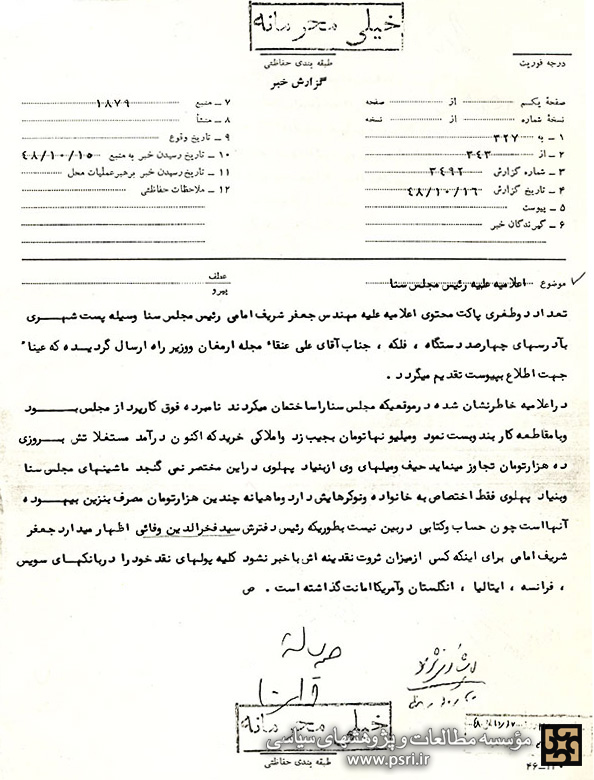 خیلی محرمانه
طبقه بندی حفاظتی
درجه فوریت
گزارش خبر
صفحه یکم از صفحه
نسخه شماره از نسخه
۱ – به ۳۲۷
۲ – از ۳۴۳
۳ – شماره گزارش ۲۴۹۲
۴ – تاریخ گزارش ۴۸/۱۰/۱۶
۵ – پیوست
۶ – گیرندگان خبر
۷ – منبع ۱۸۷۹
۸ – منشأ
۹ – تاریخ وقوع
۱۰ – تاریخ رسیدن خبر به منبع ۴۸/۱۰/۱۵
۱۱ – تاریخ رسیدن خبر برهبر عملیات محل
۱۲ – ملاحظات حفاظتی
موضوع اعلامیه علیه رئیس مجلس سنا
عطف
پیرو
تعداد دو طغری پاکت محتوی اعلامیه علیه مهندس جعفر شریف امامی رئیس مجلس سنا وسیله پست شهری
بآدرسهای چهارصد دستگاه ، فلکه ، جناب آقای علی عنقاء مجله ارمغان ووزیر راه ارسال گردیده که عیناً
جهت اطلاع بپیوست تقدیم میگردد .
دراعلامیه خاطرنشان شده درموقعیکه مجلس سناراساختمان میکردند نامبرده فوق کارپرداز مجلس بود
وبامقاطعه کار بندوبست نمود ومیلیونهاتومان بجیب زد واملاکی خریدکه اکنون درآمد مستغلاتش بروزی
ده هزارتومان تجاوز مینماید حیف ومیلهای وی ازبنیاد پهلوی دراین مختصر نمی گنجد ماشینهای مجلس سنا
وبنیاد پهلوی فقط اختصاص به خانواده ونوکرهایش دارد وماهیانه چندین هزارتومان مصرف بنزین بیهوده
آنهااست چون حساب وکتابی دربین نیست بطوریکه رئیس دفترش سید فخرالدین وفائی اظهار میدارد جعفر
شریف امامی برای اینکه کسی ازمیزان ثروت نقدینه اش باخبر نشود کلیه پولهای نقد خود را دربانکهای سویس
، فرانسه ، ایتالیا ، انگلستان وآمریکا امانت گذاشته است . ص
خیلی محرمانه
طبقه بندی حفاظتی
مؤسسه مطالعات و پژوهشهای سیاسی
www.psri.ir